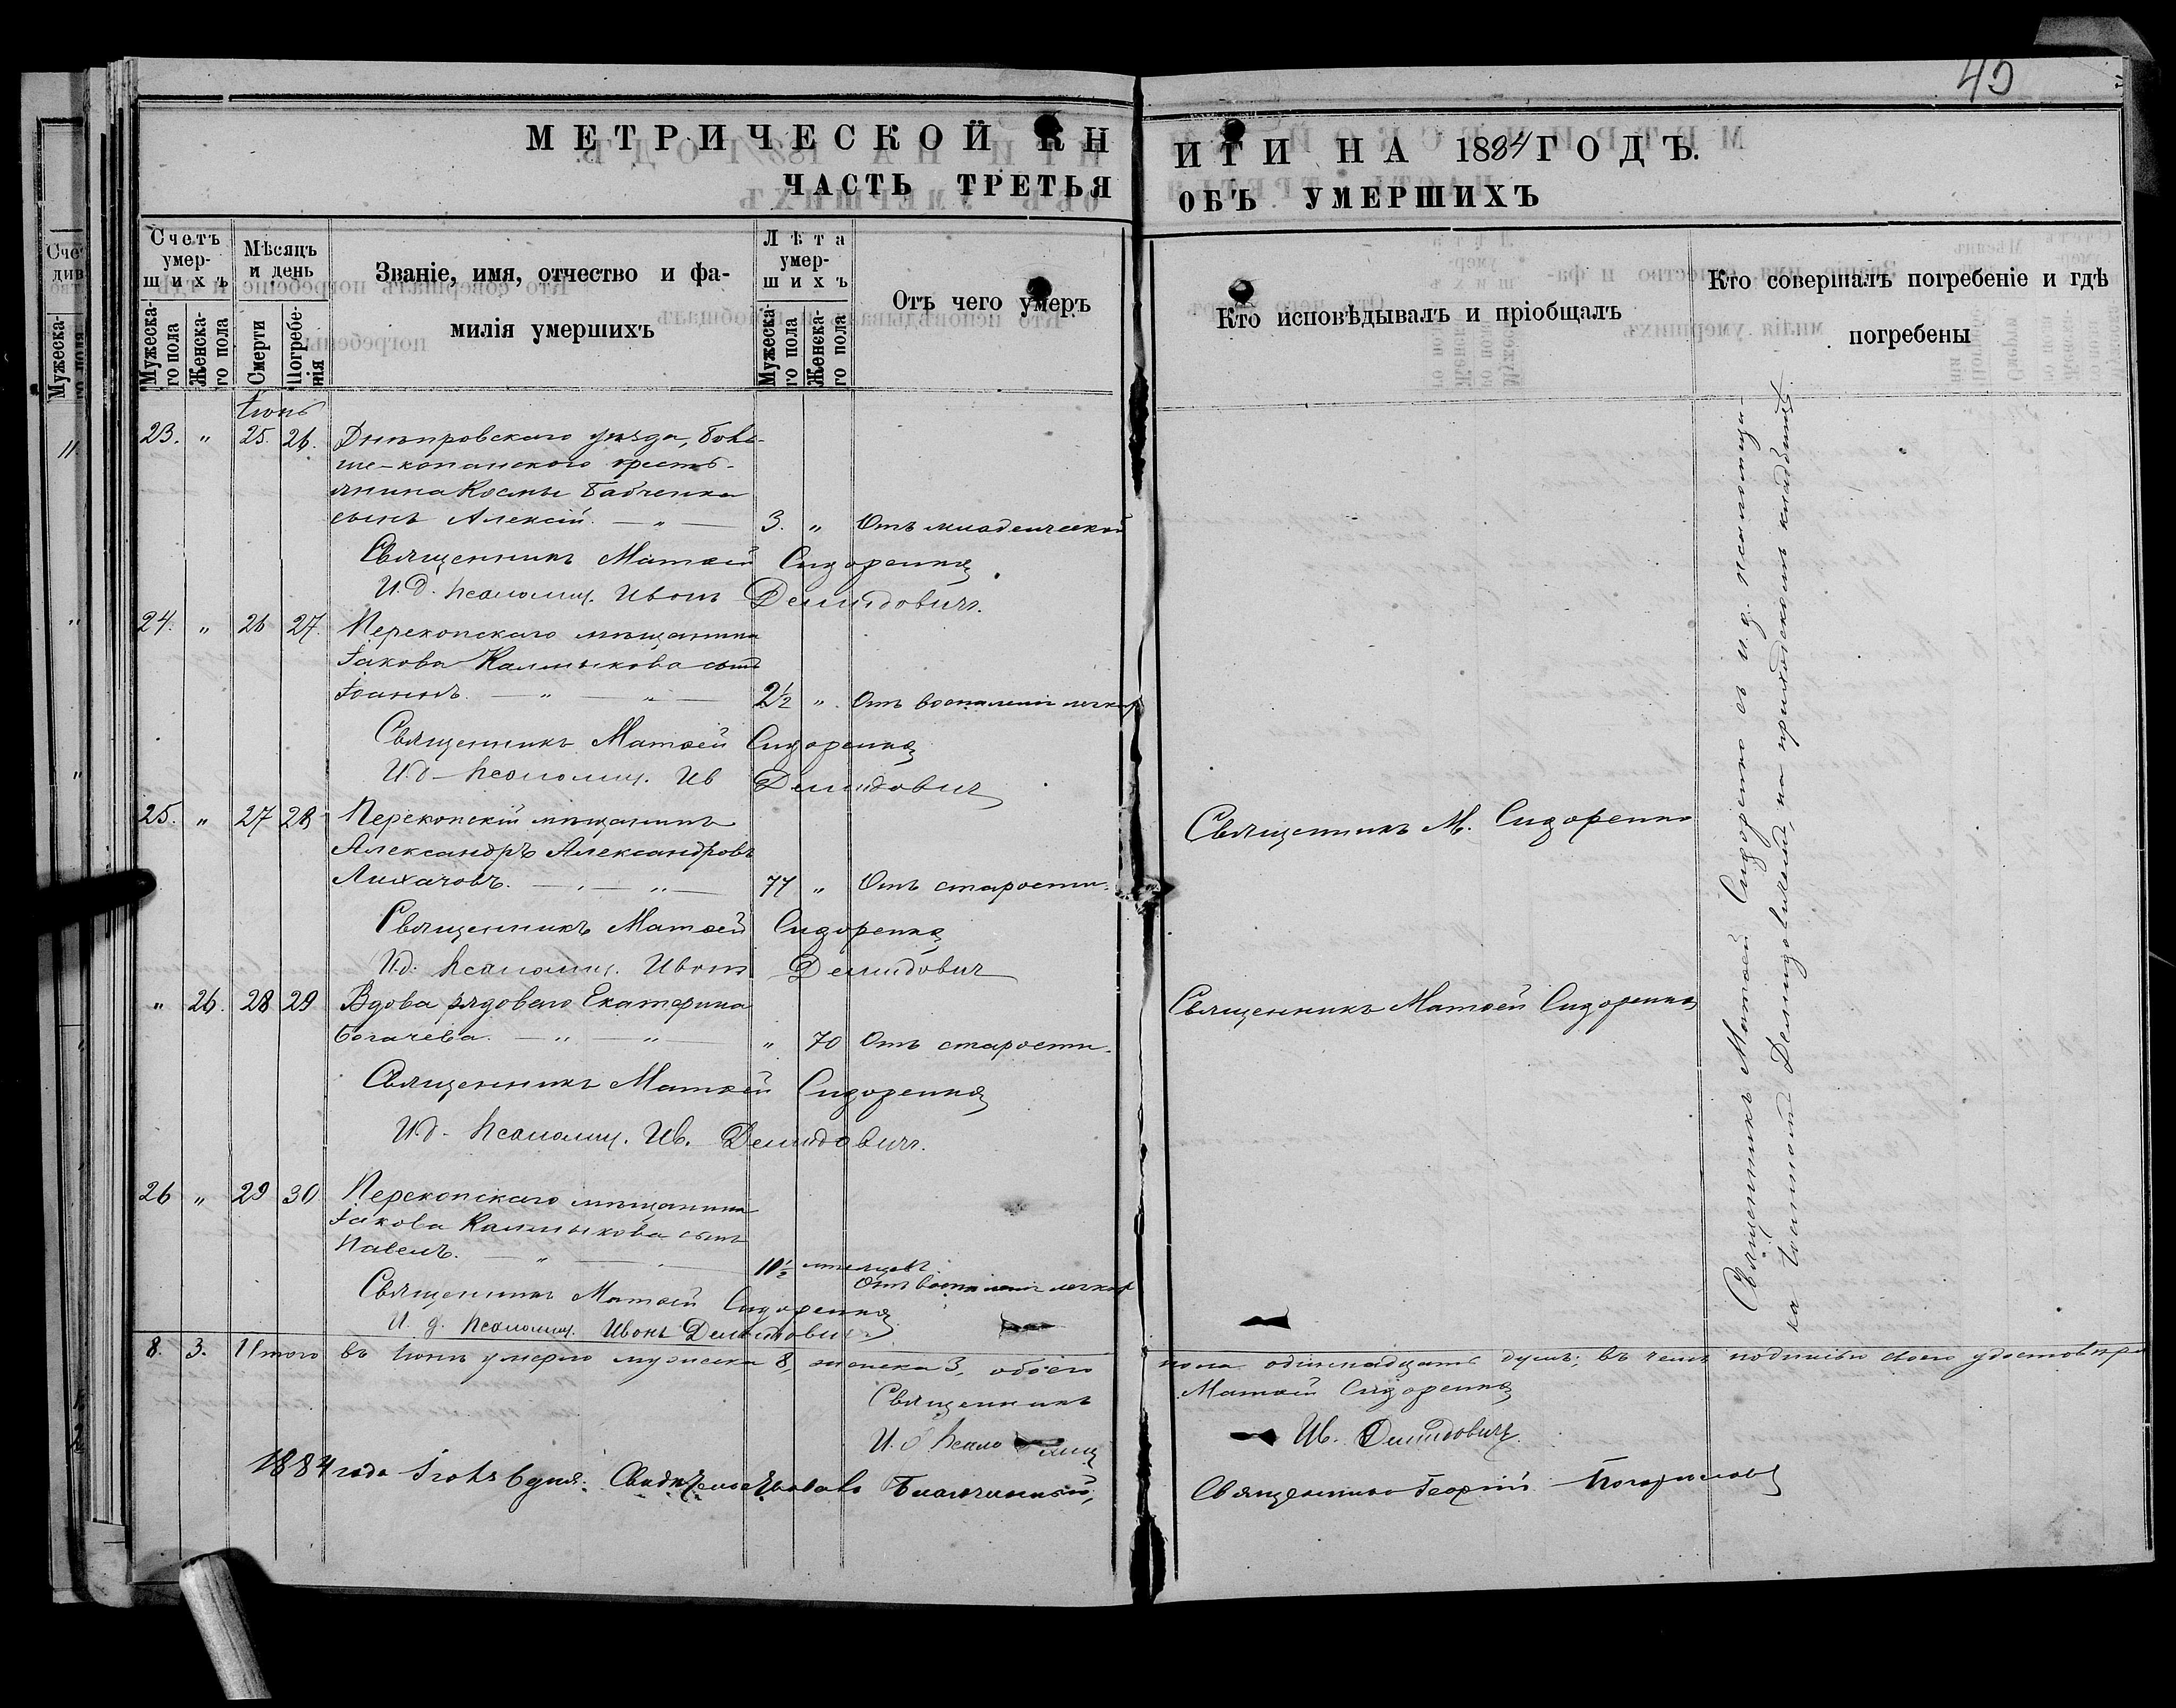 45
МЕТРИЧЕСКОЙ КНИГИ НА 1884 ГОДЪ.
ЧАСТЬ ТРЕТЬЯ ОБЪ УМЕРШИХЪ
Счетъ умер-
шихъ
Мужеска-
го пола
Женска-
го пола
Мѣсяцъ
и день
Смерти
Погребе-
нія
Званіе, имя, отчество и фа-
милія умершихъ
Лѣта
умер-
шихъ
Мужеска-
го пола
Женска-
го пола
Отъ чего умеръ
Кто исповѣдывалъ и пріобщалъ
Кто совершалъ погребеніе и гдѣ
погребены
Іюнь
23. " 25. 26. Днѣпровскаго уѣзда, Боль-
ше-копанского кресть-
янина Космы Бабченка
сынъ Алексій. — " — 3. " Отъ младенческой
Священникъ Матѳей Сидоренко
И.д. псаломщ. Иванъ Демидовичъ.
24. " 26 27. Перекопскаго мѣщанина
Іакова Калмыкова сынъ
Іоаннъ. — " — " — 2½ " Отъ воспаленія легкихъ
Священникъ Матѳей Сидоренко
И.д. псаломщ. Ив Демидович
25. " 27 28 Перекопскій мѣщанинъ
Александръ Александровъ
Лихачовъ. — " — " — 77 " Отъ старости. Священникъ М. Сидоренко
Священникъ Матѳей Сидоренко
И.д. псаломщ. Иванъ Демидович
" 26. 28 29 Вдова рядового Екатерина
Богачева. — " — " — " 70 Отъ старости. Священникъ Матѳей Сидоренко
Священникъ Матѳей Сидоренко
И.д. псаломщ. Ив. Демидовичъ.
26 " 29 30 Перекопскаго мѣщанина
Іакова Калмыкова сынъ
Павелъ. — " — 10½ мѣсяцевъ.
Отъ воспаленія легкихъ
Священникъ Матѳей Сидоренко
И. д. псаломщ. Иванъ Демидович
Священникъ Матѳей Сидоренко съ и. д. псаломщи-
ка Іоанномъ Демидовичемъ, на приходскомъ кладбищѣ
8. 3. Итого въ Іюнѣ умерло мужеска 8, женска 3, обоего пола одиннадцать душъ; въ чемъ подписью своею удостовѣря
Священникъ Матѳей Сидоренко
И.д. псаломщ Ив. Демидовичъ
1884 года Іюля 6 дня. Свидѣтельствовалъ Благочинный, Священникъ Георгій